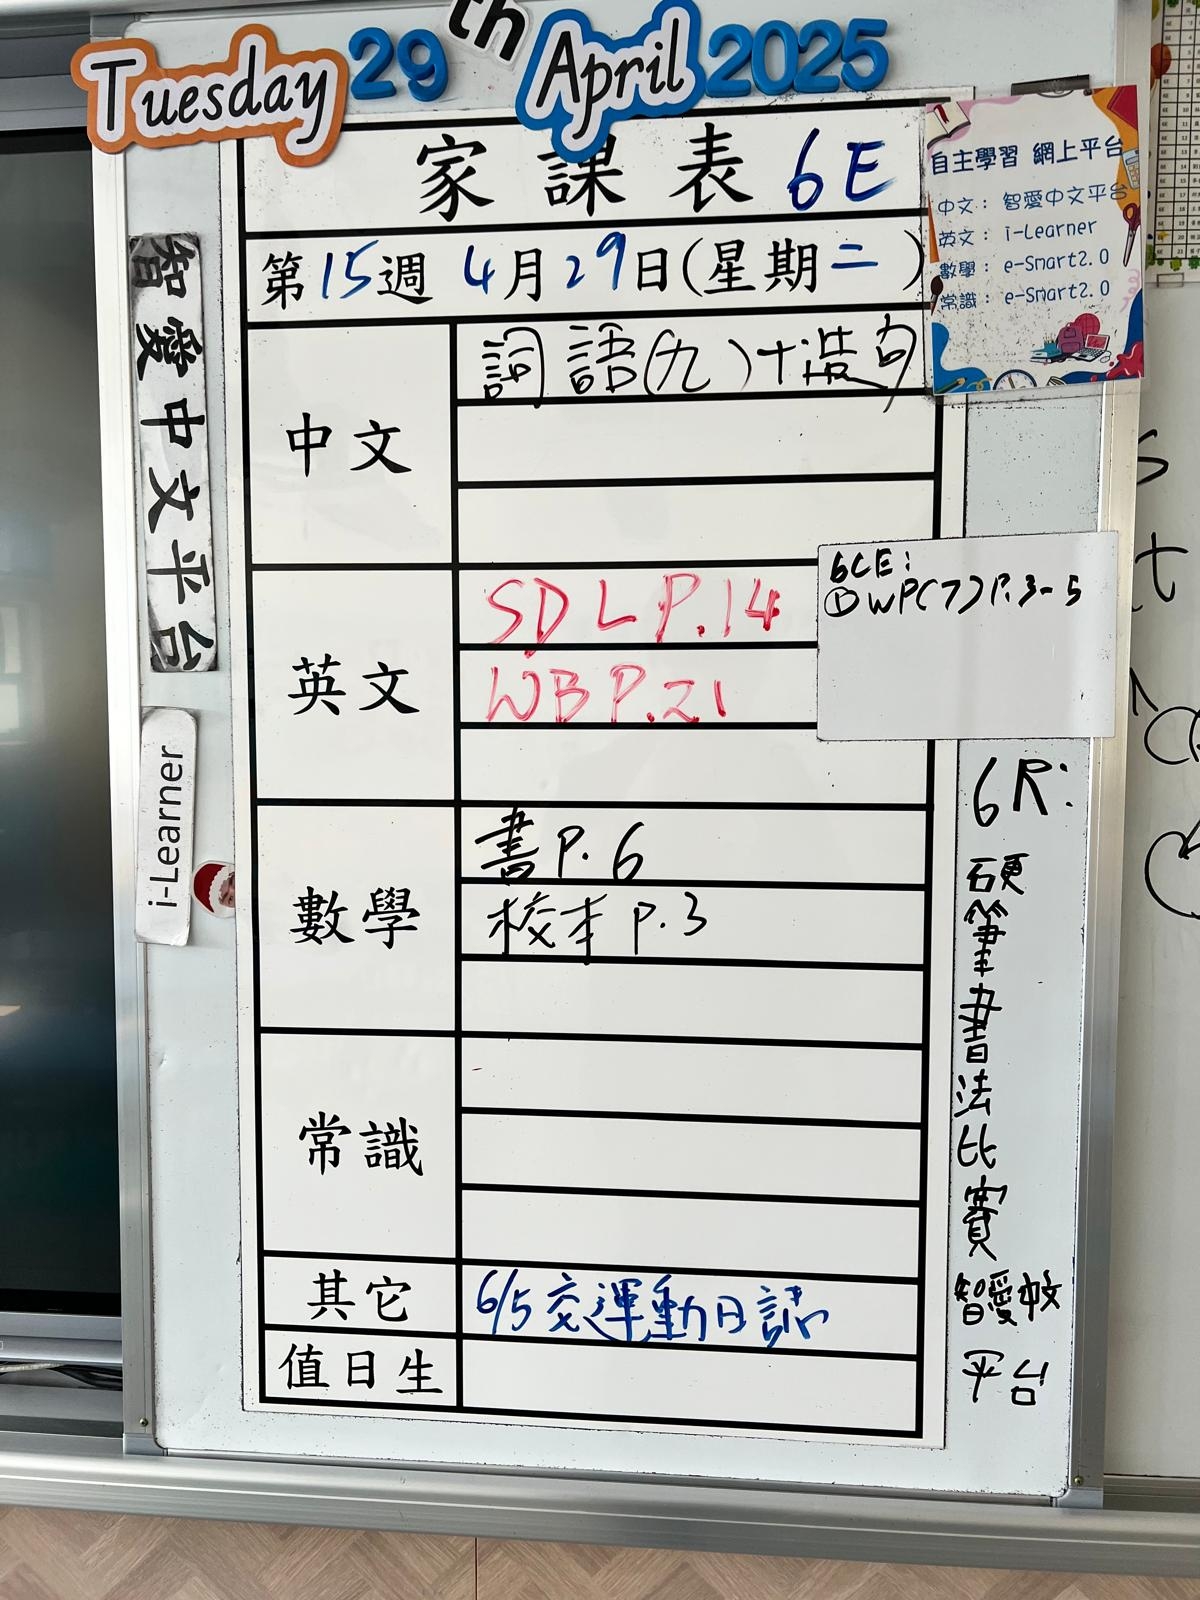 Tuesday 29th April 2025
家課表 6E
第15週 4月29日(星期二)
自主學習 網上平台
中文： 智愛中文平台
英文： i-Learner
數學： e-Smart2.0
常識： e-Smart2.0
智愛中文平台
i-Learner
中文
詞語(九)+造句
英文
SDL P.14
WB P.21
6CE:
① WP(7) P.3-5
數學
書 P.6
校本 P.3
常識
其它
6/5交運動日誌
值日生
6R:
硬筆書法比賽
智愛中文
平台